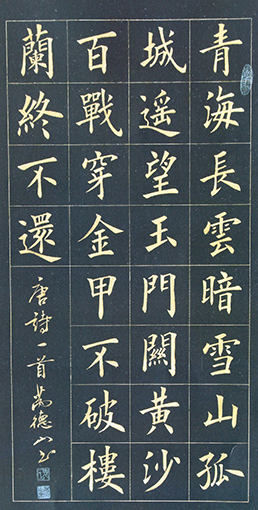 青海長雲暗雪山孤
城遥望玉門關黃沙
百戰穿金甲不破樓
蘭終不還
唐詩一首萬德山书